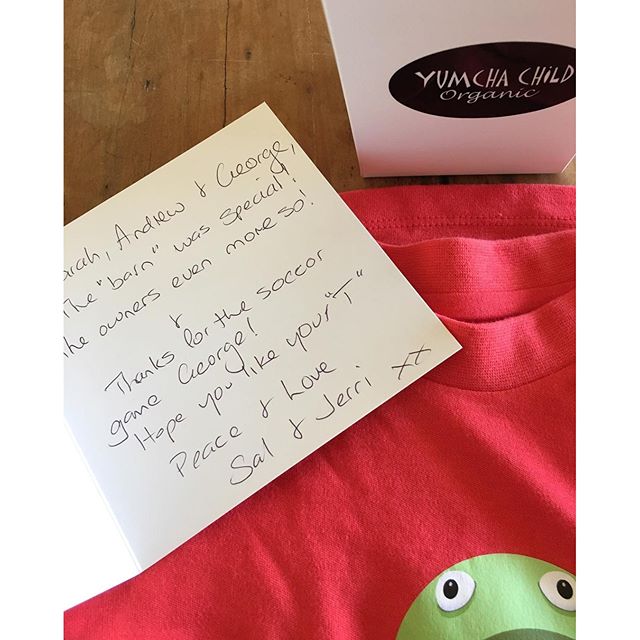 YUMCHA CHiLD
Organic
arah, Andrew & George,
The "barn" was special!
the owners even more so!
&
Thanks for the soccor
game George!
Hope you like your "T"
Peace & Love
Sal & Jerri xx